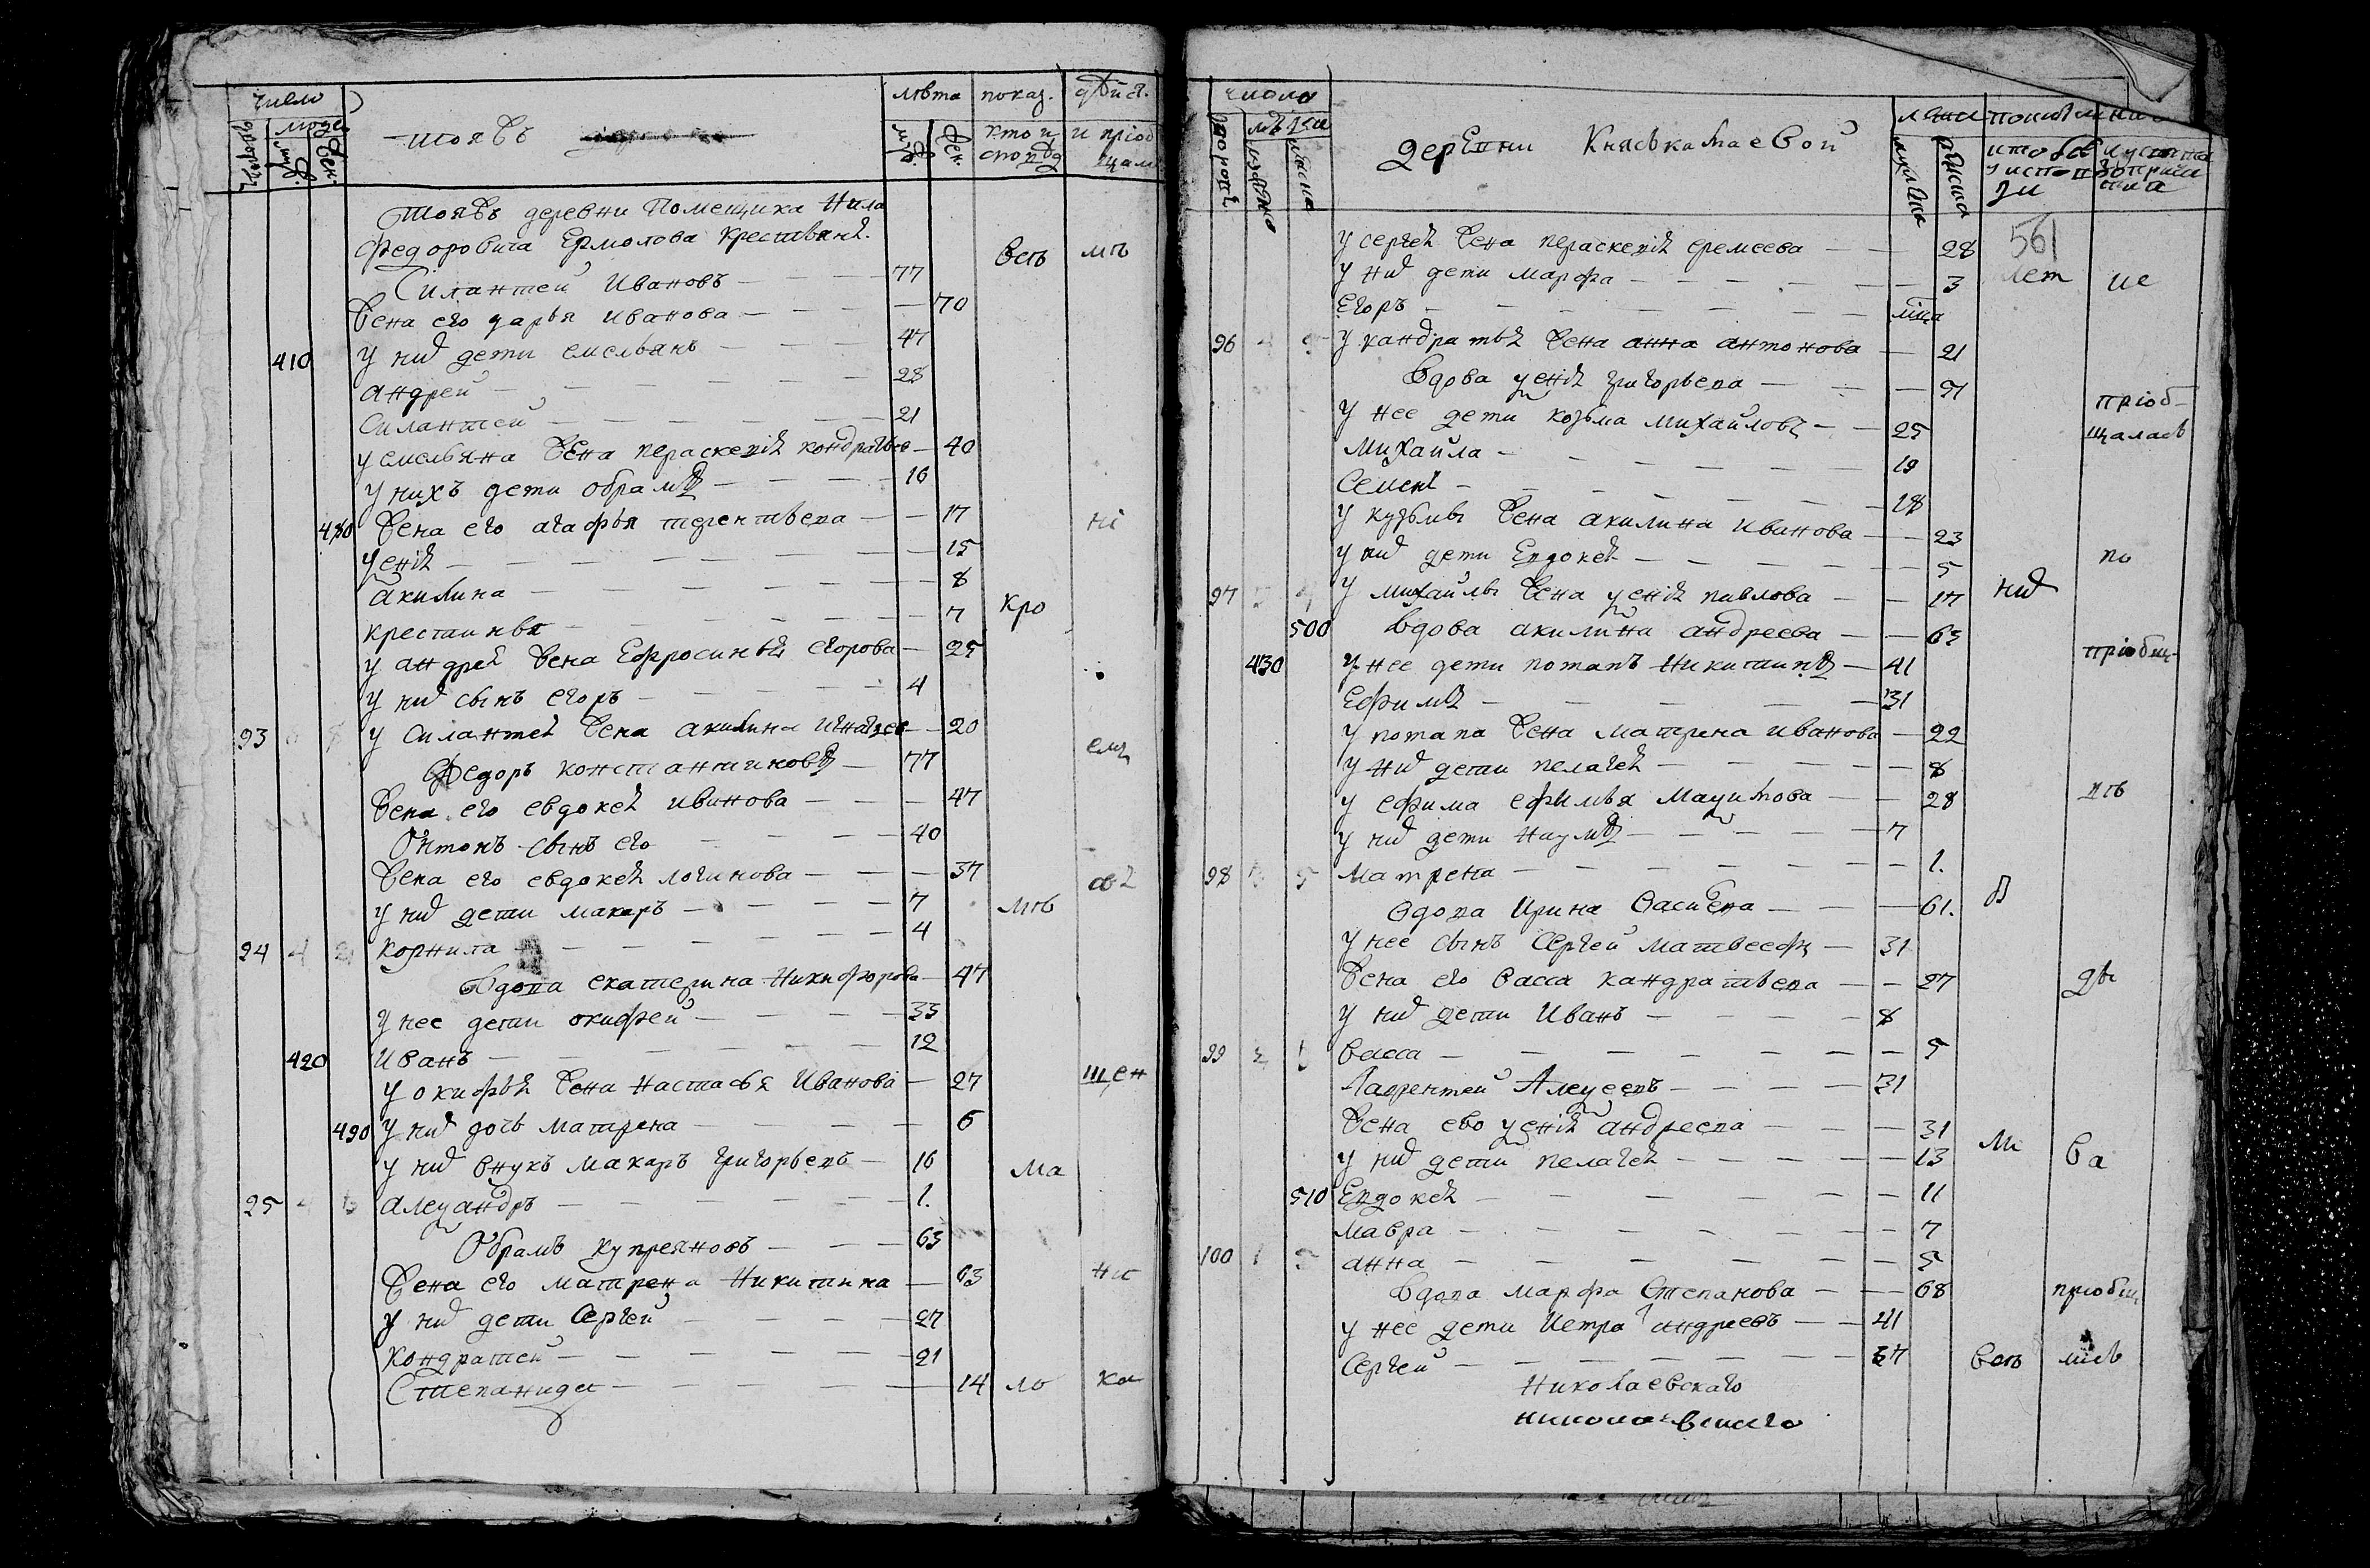 число
людей
дворовъ
муж.
жен.
тояжъ
лѣта
муж.
жен.
показ.
кто и
спо
дѣйст.
и пріоб
щал
тояжъ деревни Помещика Нила
Федоровича Ермолова крестьянѣ.
Силантей Ивановъ 77
жена его дарья иванова 70
410 у них дети емельянъ 47
андрей 28
Силантей 21
у емельяна жена параскевія кондратьев 40
у нихъ дети обрамъ 16
480 жена его агафья терентьева 17
ѯенія 15
акилина 8
крестинья 7
у андрея жена Ефросинья егорова 25
у них сынъ егоръ 4
93 у силантея жена акилина игнатьев 20
Федоръ константиновъ 77
жена его евдокея иванова 47
Онтонъ сынъ его 40
жена его евдокея логинова 37
у них дети макаръ 7
94 4 корнила 4
вдова екатерина Никифорова 47
у нее дети окифей 33
420 иванъ 12
у окифѣя жена настасья Иванова 27
490 у них дочь матрена 6
у них внукъ макаръ григорьевъ 16
95 4 алеѯандръ 1.
Обрамъ купреяновъ 63
жена его матрена Никитина 63
у них дети Сергей 27
кондратей 21
Степанида 14
весь
кро
мъ
ма
ло
мъ
ні
ем
щен
ни
ка
число
людей
деревни Княськатаевой
лета
мужска
женска
561
у сергея жена параскевія еремеева 28
у них дети марфа 3
Егоръ міца
96 у кандратья жена анна антонова 21
вдова ѯенія григорьева 51
у нее дети козьма михайловъ 25
михайла 19
Семенъ 18
у кузьмы жена акилина иванова 23
у них дети Евдокея 5
97 у михайлы жена ѯенія павлова 17
500 вдова акилина андреева 63
430 у нее дети потапъ Никитинъ 41
Ефимъ 31
у потапа жена матрена иванова 22
у них дети пелагея 8
у ефима ефимья маѯимова 28
у них дети наумъ 7
98 5 матрена 1.
вдова Ирина Васильева 61.
у нее сынъ Сергей матвеефъ 31
жена его васса кандратьева 27
у них дети Иванъ 8
99 васса 5
Лаврентей Алеѯеевъ 31
жена ево ѯенія андреева 31
у них дети пелагея 13
510 Евдокея 11
мавра 7
100 1 5 анна 5
вдова марфа Степанова 68
у нее дети Петра андреевъ 41
Сергей 37
лет
них
в
ми
весь
не
пріоб-
щалась
по
пріобщ-
дѣ
ва
пріобщ
місь
Николаевскаго
николаевскаго